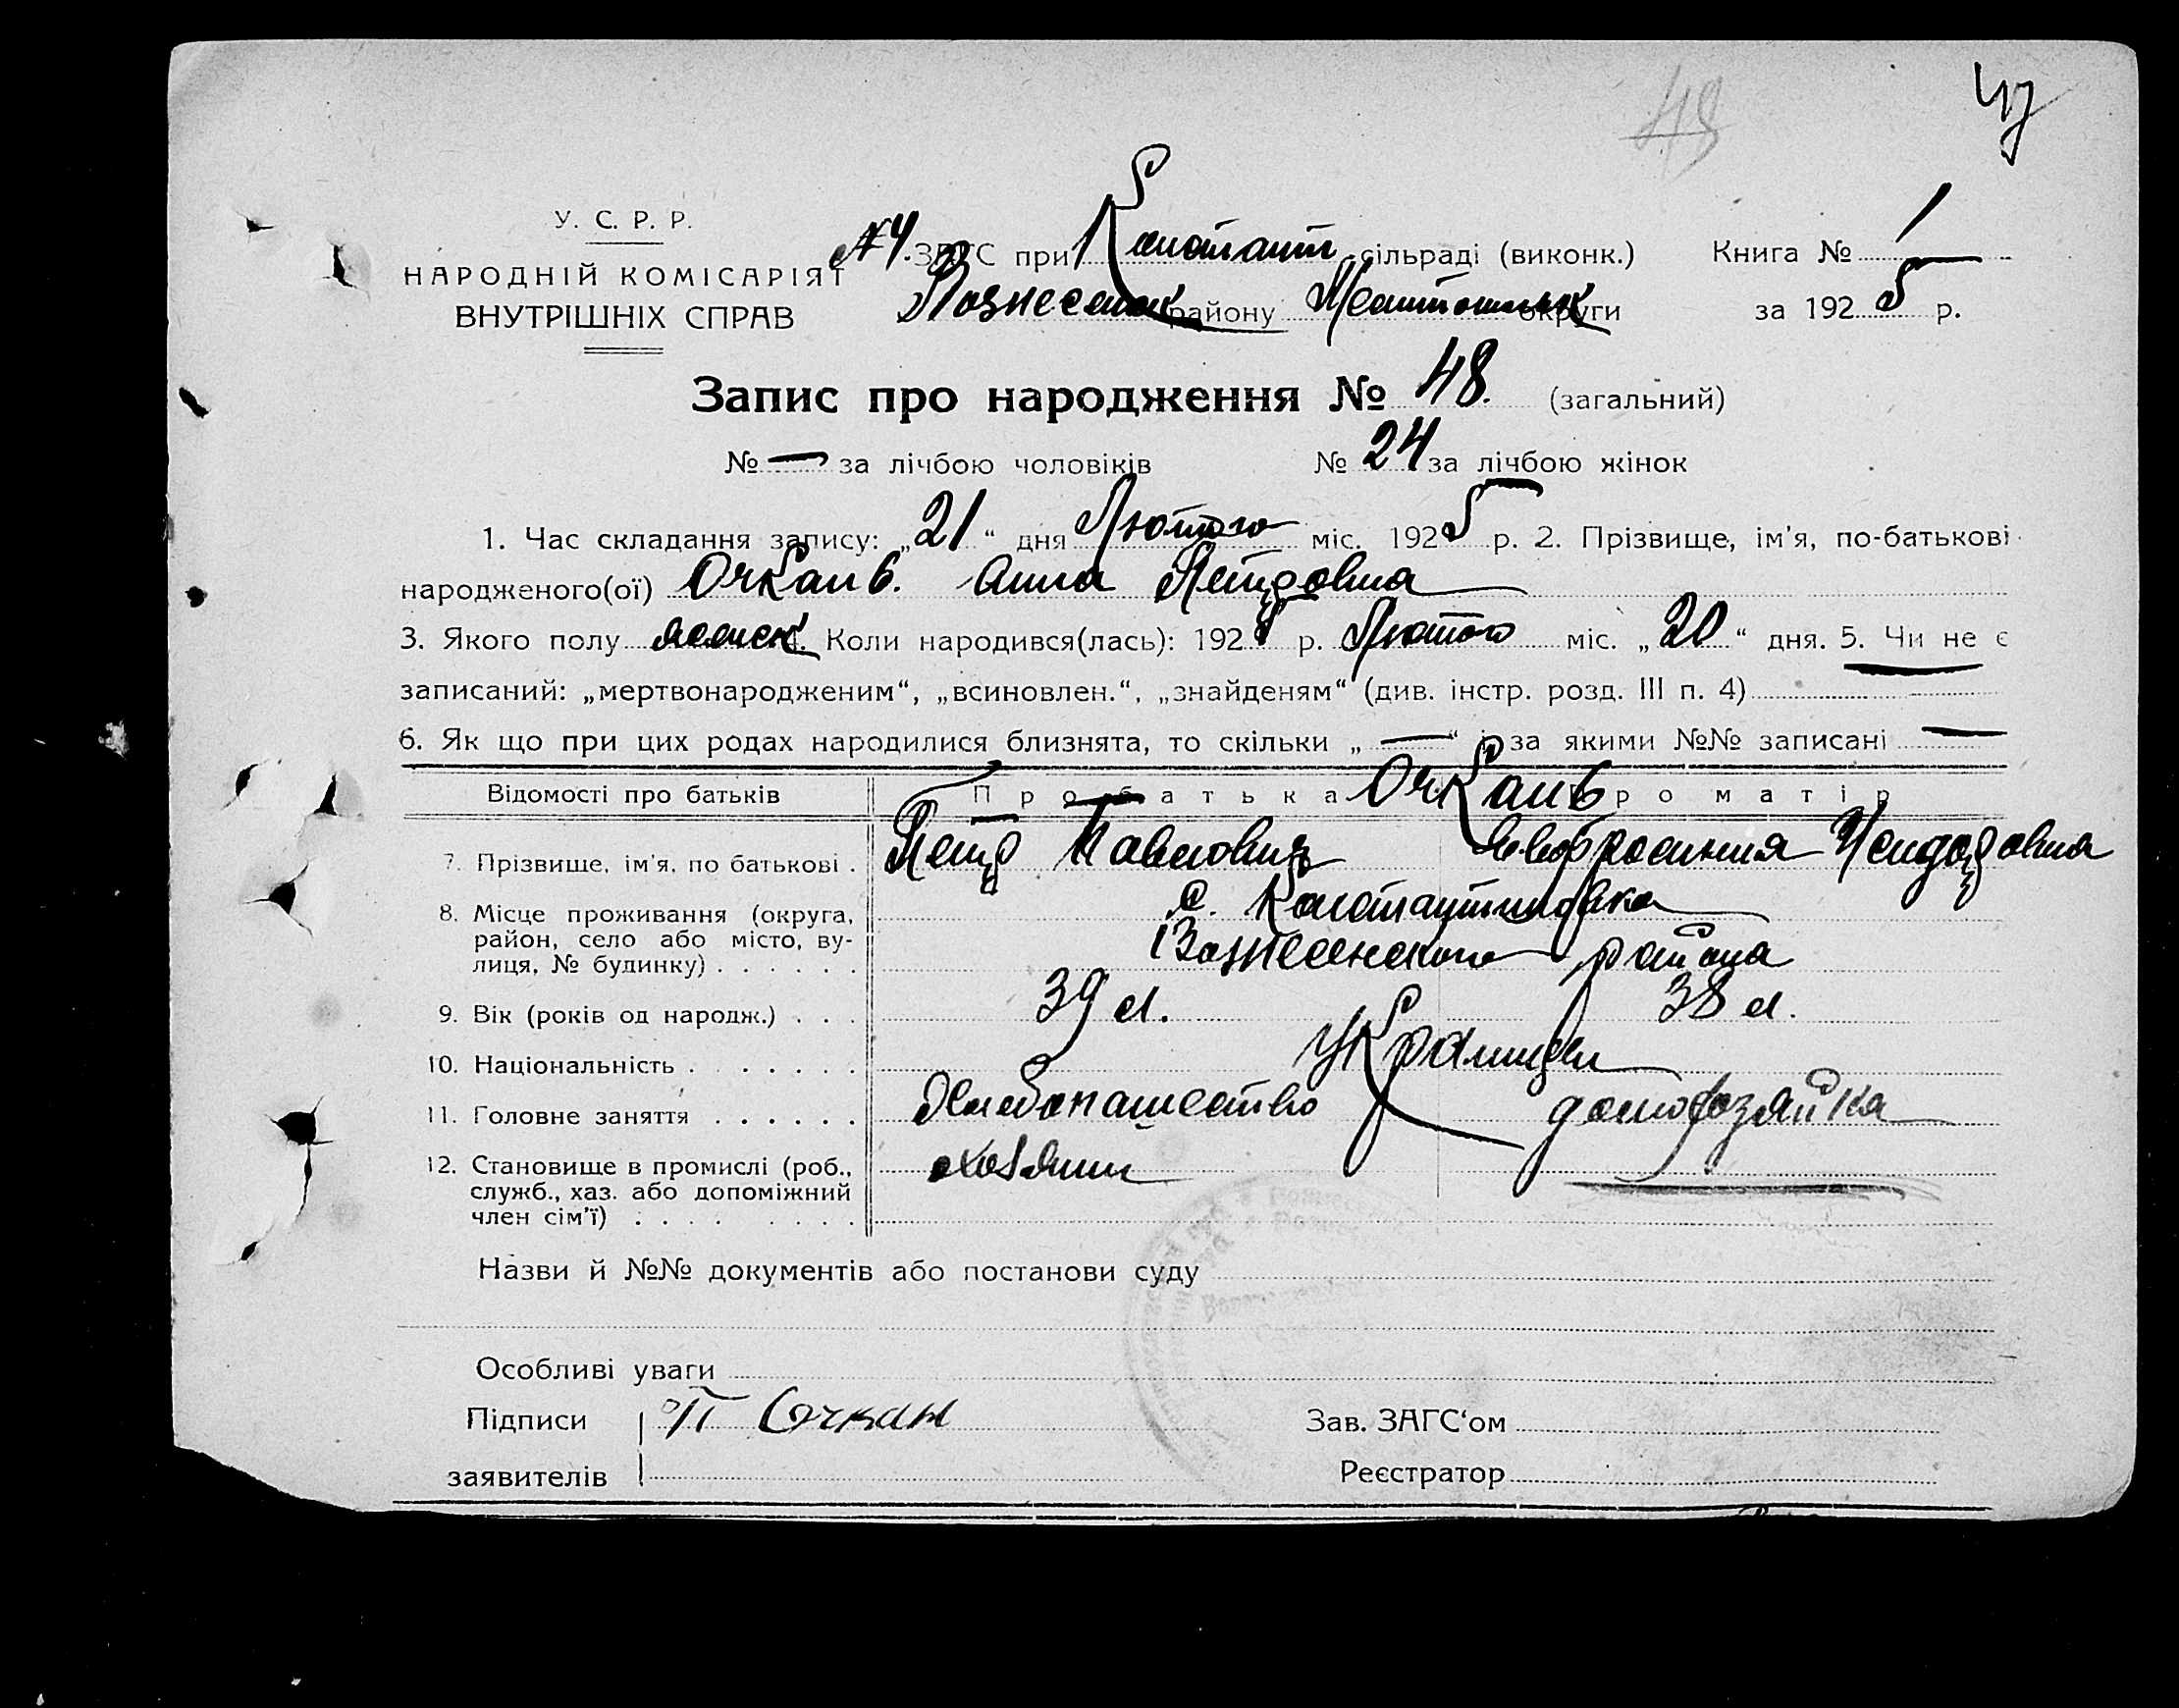 48
47
У. С. Р. Р.
НАРОДНІЙ КОМІСАРІЯТ
ВНУТРІШНІХ СПРАВ
№4. ЗАГС при Констант сільраді (виконк.) Книга № 1
Вознесенск району Мелитопольск округи за 1925 р.
Запис про народження № 48. (загальний)
№ — за лічбою чоловіків № 24 за лічбою жінок
1. Час складання запису: „21“ дня Лютого міс. 1925 р. 2. Прізвище, ім'я, по-батькові
народженого(ої) Очкань. Анна Петровна
3. Якого полу женск. Коли народився(лась): 1925 р. Лютого міс. „20“ дня. 5. Чи не є
записаний: „мертвонародженим“, „всиновлен.“, „знайденям“ (див. інстр. розд. III п. 4)
6. Як що при цих родах народилися близнята, то скільки „—“ і за якими №№ записані —
Відомості про батьків Про батька Очкань Про матір
7. Прізвище, ім'я, по батькові . Петр Павлович Евфросиния
8. Місце проживання (округа, с. Константиновка
район, село або місто, ву- Вознесенского района
лиця, № будинку) . . . . . .
9. Вік (років од народж.) . . . 39 л. 38 л.
10. Національність . . . . . . . Украинцы
11. Головне заняття . . . . . . Хлебопашество домохозяйка
12. Становище в промислі (роб., хозяин
служб., хаз. або допоміжний
член сім'ї) . . . . . . . .
Назви й №№ документів або постанови суду
Особливі уваги
Підписи П Очкан Зав. ЗАГС‘ом
заявителів Реєстратор